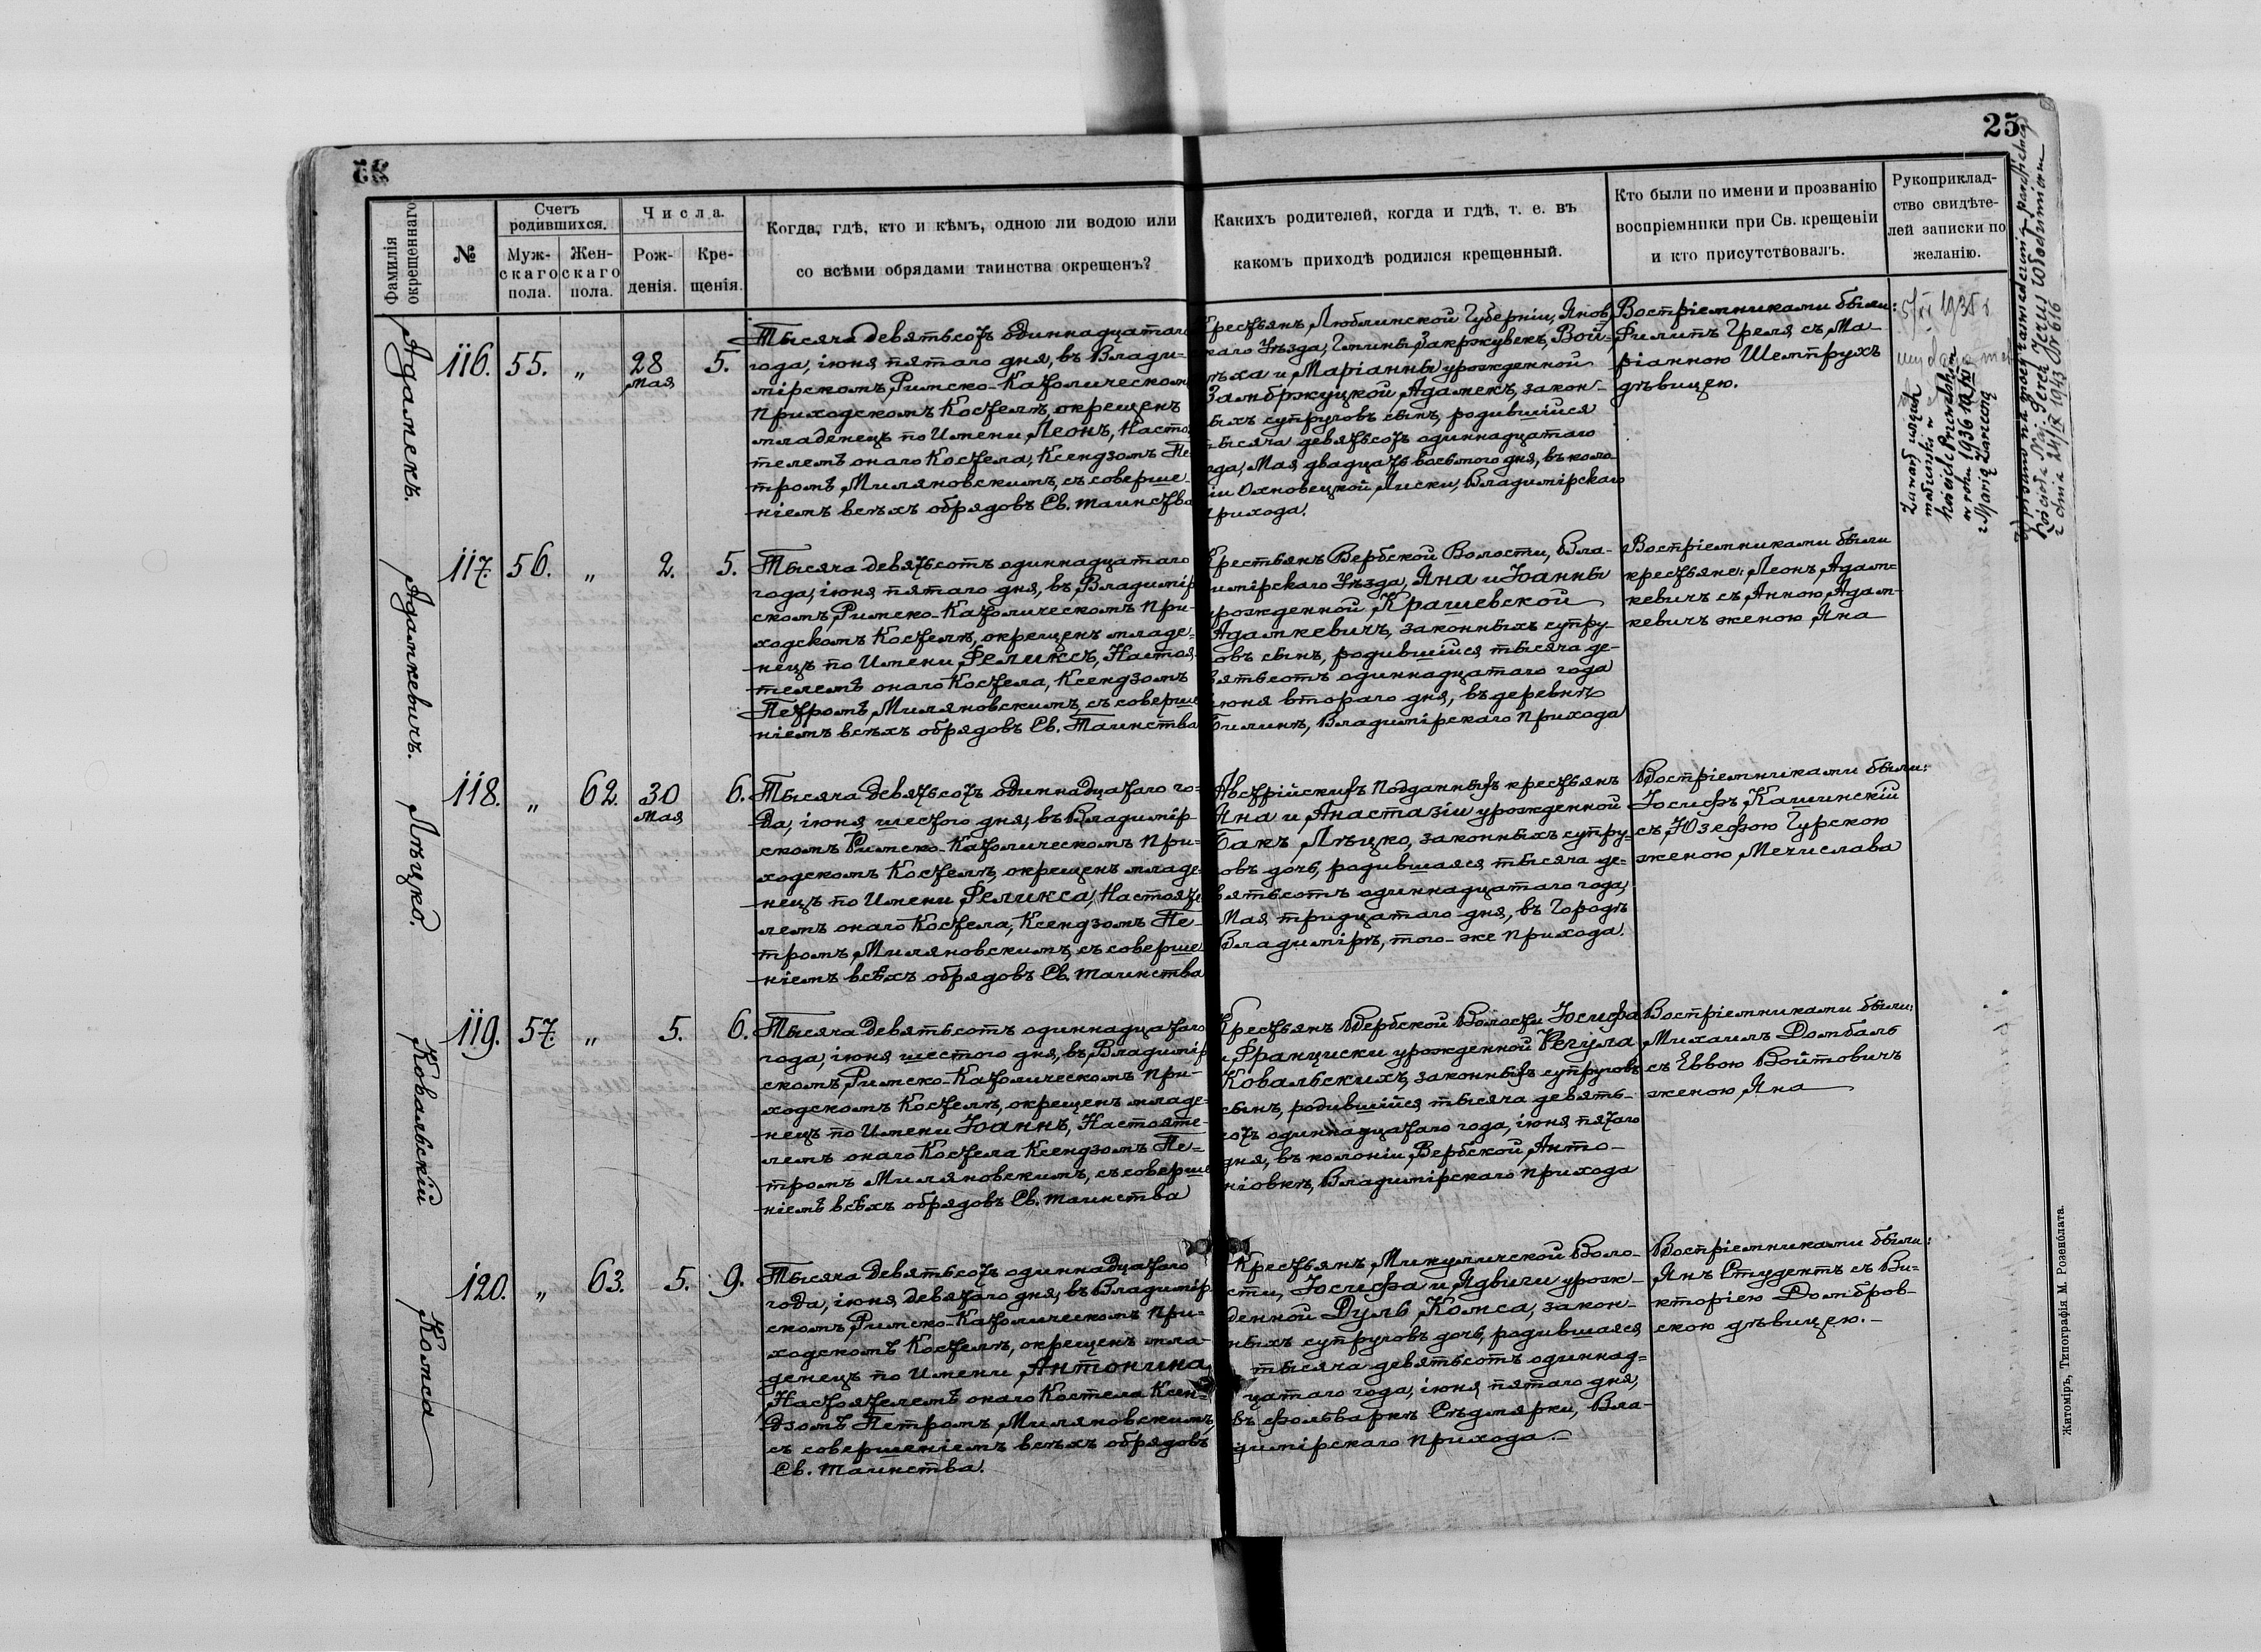 25
Фамилія окрещеннаго
№
Счетъ родившихся.
Мужскаго пола.
Женскаго пола.
Числа.
Рожденія.
Крещенія.
Когда, гдѣ, кто и кѣмъ, одною ли водою или
со всѣми обрядами таинства окрещенъ?
Какихъ родителей, когда и гдѣ, т. е. въ
какомъ приходѣ родился крещенный.
Кто были по имени и прозванію
воспріемники при Св. крещеніи
и кто присутствовалъ.
Рукоприклад-
ство свидѣте-
лей записки по
желанію.
Адамекъ.
116. 55. „ 28 Мая 5.
Тысяча девятьсотъ одиннадцатаго
года, іюня пятаго дня, въ Влади-
мірскомъ Римско-Католическомъ
Приходскомъ Костелѣ, окрещенъ
младенецъ по Имени Леонъ, Насто
телемъ онаго Костела, Ксендзомъ Пе
тромъ Миляновскимъ, съ соверше-
ніемъ всѣхъ обрядовъ Св. таинства
Крестьянъ Люблинской Губерніи, Янов
скаго Уѣзда, Гмины Закржувекъ, Вой-
тѣха и Маріанны урожденной
Замбржуцкой, Адамекъ, закон-
ныхъ супруговъ сынъ, родившійся
тысяча девятьсотъ одиннадцатаго
года, Мая двадцать восьмого дня, въ коло-
ніи Охновецкой Лиски, Владимірскаго
прихода.
Воспріемниками были:
Филипъ Греля съ Ма-
ріанною Шемпрухъ
дѣвицею.
Zawarł związek
małżeński w
kościele
w roku 1936
z Marią
kościoła Naj. Serca Jezus Włodzimierzu
z dnia 24/IX 1943 Nr 616
Адамкевичъ.
117. 56. „ 2. 5.
Тысяча девятьсотъ одиннадцатаго
года, іюня пятаго дня, въ Владимір
скомъ Римско-Католическомъ При-
ходскомъ Костелѣ, окрещенъ младе-
нецъ по Имени Феликсъ, Настоя-
телемъ онаго Костела, Ксендзомъ
Петромъ Миляновскимъ, съ соверше
ніемъ всѣхъ обрядовъ Св. Таинства
Крестьянъ Вербской Волости, Вла-
димірскаго Уѣзда, Яна и Іоанны
урожденной Крашевской
Адамкевичъ, законныхъ супру-
говъ сынъ, родившійся тысяча де-
вятьсотъ одиннадцатаго года
іюня втораго дня, въ деревнѣ
Билинѣ, Владимірскаго прихода
Воспріемниками были
крестьяне: Леонъ Адам-
кевичъ съ Анною Адам-
кевичъ женою Яна
Лѣцко.
118. „ 62. 30 Мая 6.
Тысяча девятьсотъ одиннадцатаго го-
да, іюня шестого дня, въ Владимір-
скомъ Римско-Католическомъ При-
ходскомъ Костелѣ, окрещенъ младе-
нецъ по Имени Феликса, Настояте
лемъ онаго Костела, Ксендзомъ Пе-
тромъ Миляновскимъ, съ соверше
ніемъ всѣхъ обрядовъ Св. таинства
Австрійскихъ подданныхъ крестьянъ
Яна и Анастазіи урожденной
Бакъ, Лѣцко, законныхъ супру-
говъ дочь, родившаяся тысяча де-
вятьсотъ одиннадцатаго года,
Мая тридцатаго дня, въ Городѣ
Владимірѣ, того-же прихода.
Воспріемниками были:
Іосифъ Кашинскій
съ Юзефою Гурскою
женою Мечислава
Ковальскій
119. 57. „ 5. 6.
Тысяча девятьсотъ одиннадцатаго
года, іюня шестого дня, въ Владимір
скомъ Римско-Католическомъ При-
ходскомъ Костелѣ, окрещенъ младе-
нецъ по Имени Іоаннъ, Настояте-
лемъ онаго Костела Ксендзомъ Пе-
тромъ Миляновскимъ, съ соверше
ніемъ всѣхъ обрядовъ Св. таинства
Крестьянъ Вербской Волости Іосифа
и Франциски урожденной Регула
Ковальскихъ, законныхъ супруговъ
сынъ, родившійся тысяча девять-
сотъ одиннадцатаго года, іюня пятаго
дня, въ колоніи Вербской Анто-
ніовкѣ, Владимірскаго прихода
Воспріемниками были:
Михаилъ Домбаль
съ Еввою Войтовичъ
женою Яна
Комса
120. „ 63. 5. 9.
Тысяча девятьсотъ одиннадцатаго
года, іюня девятаго дня, въ Владимір-
скомъ Римско-Католическомъ При-
ходскомъ Костелѣ, окрещенъ мла-
денецъ по Имени Антонина
Настоятелемъ онаго Костела Ксен-
дзомъ Петромъ Миляновскимъ,
съ совершеніемъ всѣхъ обрядовъ
Св. таинства.
Крестьянъ Микуличской Воло-
сти, Іосифа и Ядвиги урож-
денной Дуль, Комса, закон-
ныхъ супруговъ дочь, родившаяся
тысяча девятьсотъ одиннад-
цатаго года, іюня пятаго дня,
въ фольваркѣ Сѣдмярки, Вла-
димірскаго прихода.
Воспріемниками были:
Янъ Студентъ съ Ви-
кторіею Домбров-
скою дѣвицею.
Житоміръ, Типографія М. Розенблата.